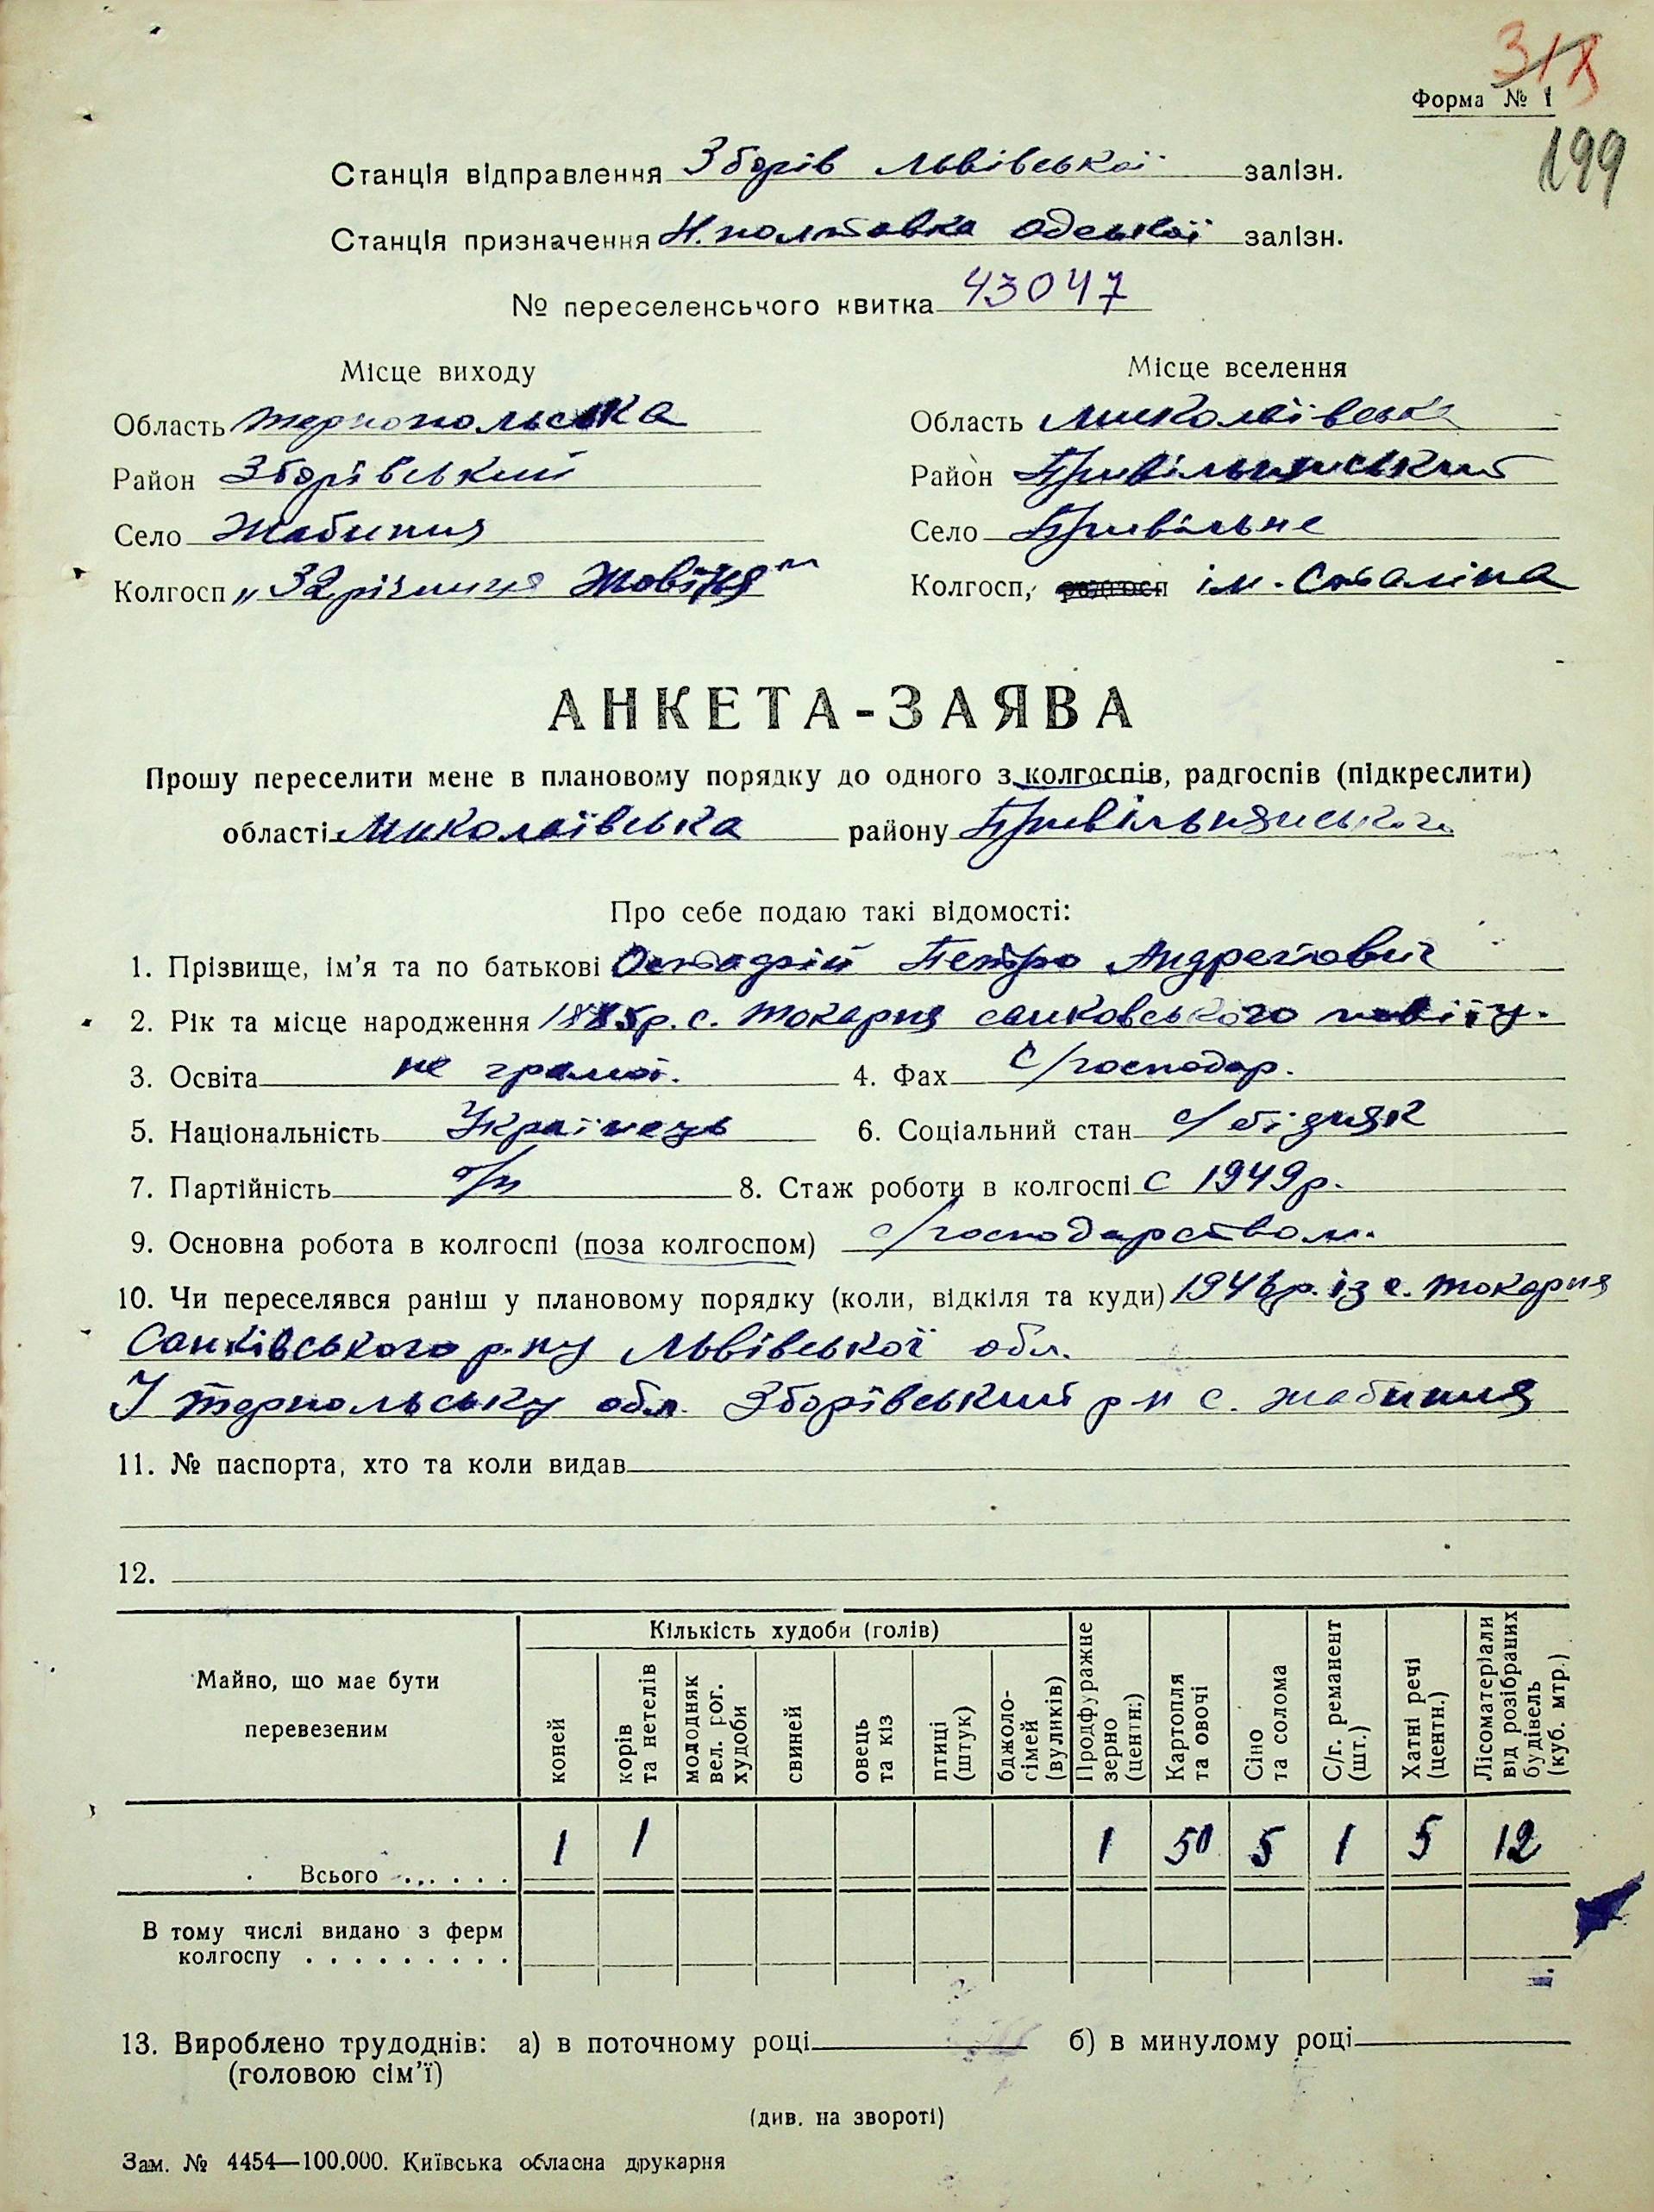 318
Форма № 1
199
Станція відправлення Зборів Львівської залізн.
Станція призначення Н. полтавка Одеської залізн.
№ переселенського квитка 43047
Місце виходу Місце вселення
Область Тернопольська Область Миколаївська
Район Зборівський Район Привільнянський
Село Жабиння Село Привільне
Колгосп „32 річниця Жовтня" Колгосп, радгосп ім. Сталіна
АНКЕТА-ЗАЯВА
Прошу переселити мене в плановому порядку до одного з колгоспів, радгоспів (підкреслити)
області Миколаївська району Привільнянського
Про себе подаю такі відомості:
1. Прізвище, ім'я та по батькові Петро Андрейович
2. Рік та місце народження 1885р. с. Токарня санковського повіту.
3. Освіта не грамот. 4. Фах С/господар.
5. Національність Українець 6. Соціальний стан с/бідняк
7. Партійність б/п 8. Стаж роботи в колгоспі с 1949р.
9. Основна робота в колгоспі (поза колгоспом) с/господарством.
10. Чи переселявся раніш у плановому порядку (коли, відкіля та куди) 1946р. із с. Токарня
Санківського р-ну Львівської обл.
У Терпольську обл. Зборівський р-н с. Жабиння
11. № паспорта, хто та коли видав
12.
Майно, що має бути перевезеним
Кількість худоби (голів)
коней
корів та нетелів
молодняк вел. рог. худоби
свиней
овець та кіз
птиці (штук)
бджоло-сімей (вуликів)
Продфуражне зерно (центн.)
Картопля та овочі
Сіно та солома
С/г. реманент (шт.)
Хатні речі (центн.)
Лісоматеріали від розібраних будівель (куб. мтр.)
Всього . . . . . . 1 1 1 50 5 1 5 12
В тому числі видано з ферм
колгоспу . . . . . . . . .
13. Вироблено трудоднів: а) в поточному році б) в минулому році
(головою сім'ї)
(див. на звороті)
Зам. № 4454—100.000. Київська обласна друкарня